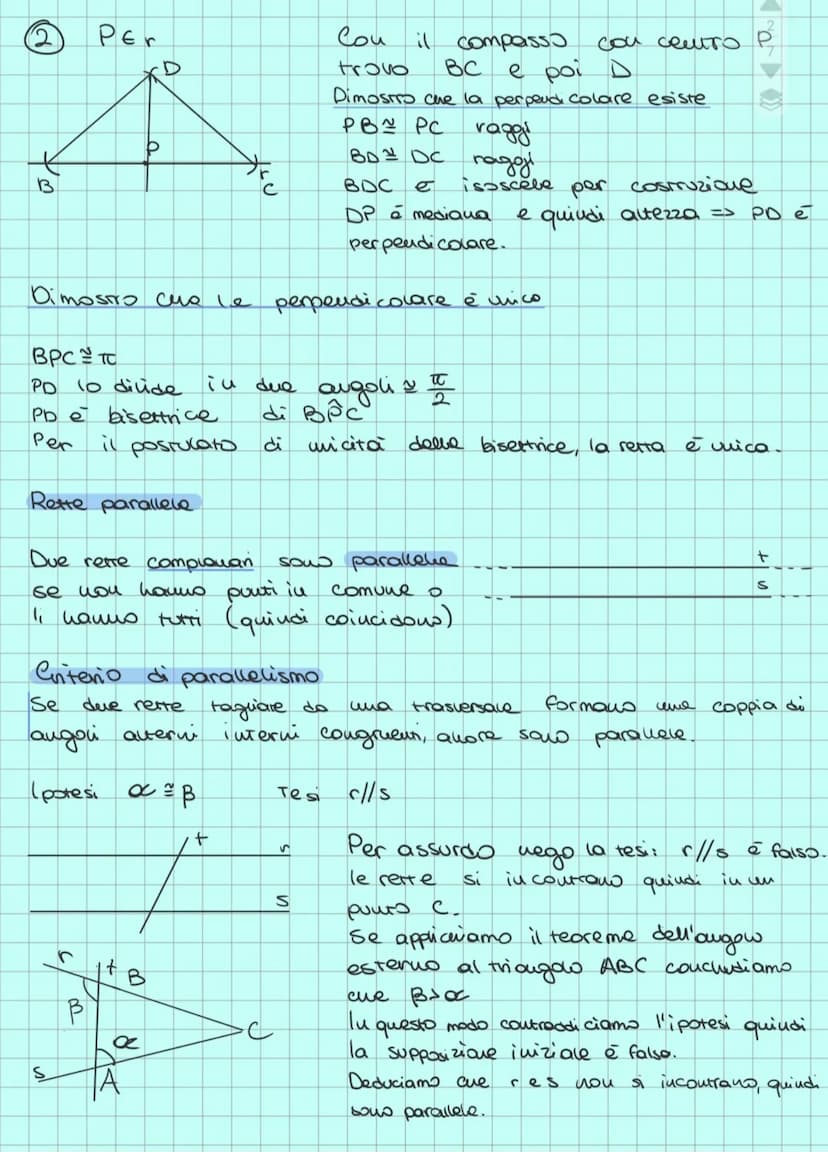 ② P∈r
Con il compasso con centro P
trovo BC e poi D
Dimostro che la perpendicolare esiste
PB≅PC raggi
BD≅DC raggi
BDC è isoscele per costruzione
DP è mediana e quindi altezza => PD è
perpendicolare.
D
P
B
r
C
Dimostro che la perpendicolare è unica
BPC≅π
PD lo divide in due angoli ≅ π/2
PD è bisettrice di BP̂C
Per il postulato di unicità della bisettrice, la retta è unica.
Rette parallele
Due rette complanari sono parallele
se non hanno punti in comune o
li hanno tutti (quindi coincidono)
t
s
Criterio di parallelismo
Se due rette tagliate da una trasversale formano una coppia di
angoli alterni interni congruenti, allora sono parallele.
Ipotesi α≅β Tesi r//s
t
r
s
Per assurdo nego la tesi: r//s è falso.
le rette si incontrano quindi in un
punto C.
Se applichiamo il teorema dell'angolo
esterno al triangolo ABC concludiamo
che β>α
In questo modo contraddiciamo l'ipotesi quindi
la supposizione iniziale è falsa.
Deduciamo che r e s non si incontrano, quindi
sono parallele.
r
t
B
β
C
α
s
A